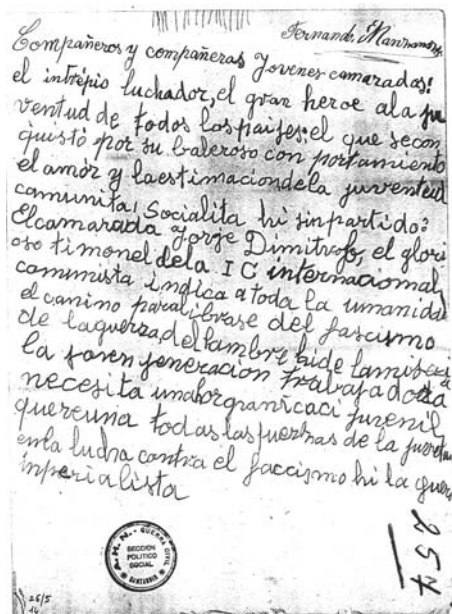 Fernando Manzano
Compañeros y compañeras Jovenes camaradas!
el intrepio luchador, el gran heroe ala ju
ventud de todos los paises; el que secon
quistó por su baleroso con portamiento
el amór y laestimaciondela juventud
comunita, Socialita hi sinpartido?
Elcamarada Jorje Dimitrofs, el glori
oso timonel dela I C internacional
comunista indica a toda la umanida
el camino paralibrase del fascismo
de laguerra, del lambre hide lamiseia
la joven jeneracion trabajadora
necesita unahorganicaci juvenil
quereuna todas las fuerzas de la juventu
enla lucha contra el faccismo hi la guerr
inperialista
A.H.N. - GUERRA CIVIL
SECCION
POLITICO
SOCIAL
257
26/5
14